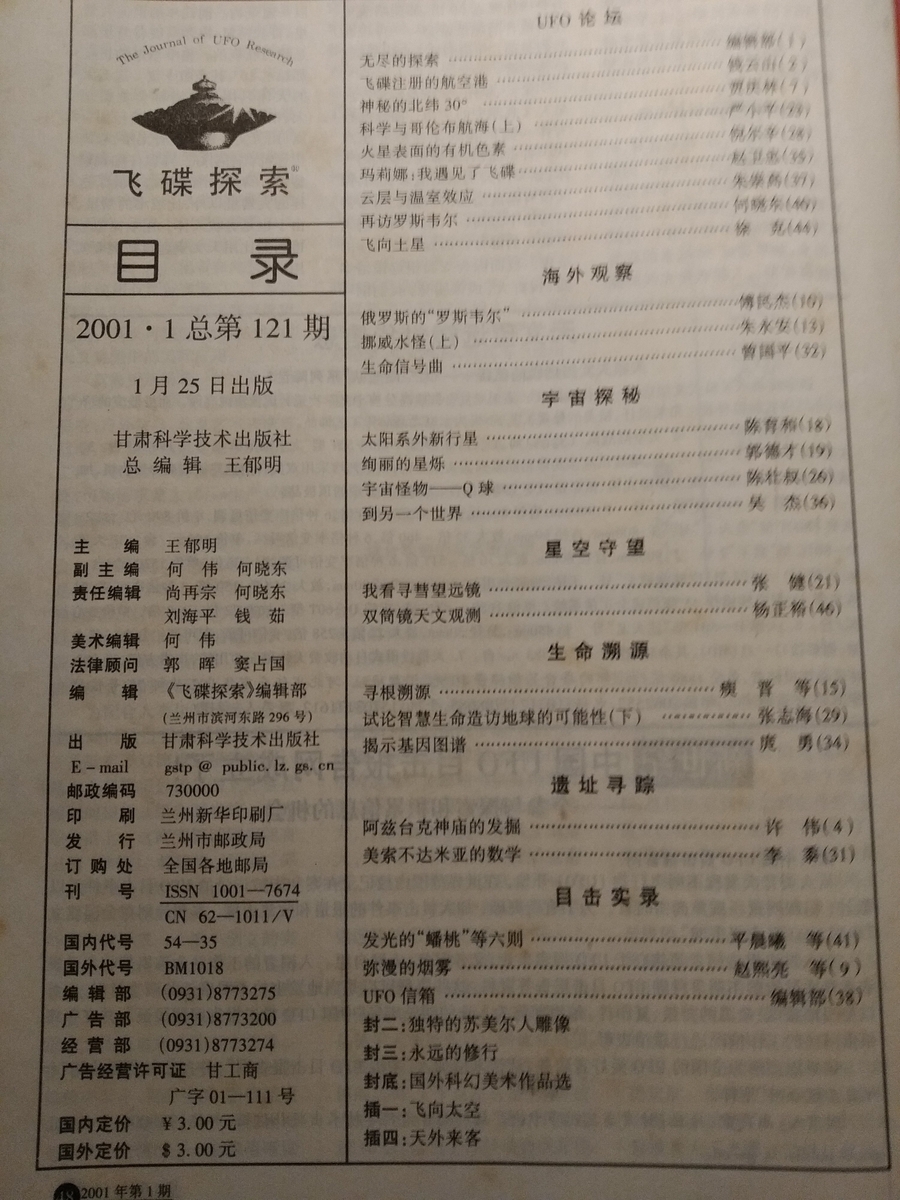 The Journal of UFO Research
飞碟探索
目 录
2001·1 总第 121 期
1 月 25 日出版
甘肃科学技术出版社
总 编 辑 王郁明
主 编 王郁明
副 主 编 何 伟 何晓东
责任编辑 尚再宗 何晓东
刘海平 钱 茹
美术编辑 何 伟
法律顾问 郭 晖 窦占国
编 辑 《飞碟探索》编辑部
(兰州市滨河东路 296 号)
出 版 甘肃科学技术出版社
E－mail gstp @ public. lz. gs. cn
邮政编码 730000
印 刷 兰州新华印刷厂
发 行 兰州市邮政局
订 购 处 全国各地邮局
刊 号 ISSN 1001—7674
CN 62—1011/V
国内代号 54—35
国外代号 BM1018
编 辑 部 (0931)8773275
广 告 部 (0931)8773200
经 营 部 (0931)8773274
广告经营许可证 甘工商
广字 01—111 号
国内定价 ￥3.00 元
国外定价 $3.00 元
UFO 论 坛
无尽的探索 编辑部(1)
飞碟注册的航空港 (2)
神秘的北纬 30° (7)
科学与哥伦布航海(上) (23)
火星表面的有机色素 (28)
玛莉娜:我遇见了飞碟 (35)
云层与温室效应 (37)
再访罗斯韦尔 何晓东(40)
飞向土星 徐 克(44)
海外观察
俄罗斯的“罗斯韦尔” (10)
挪威水怪(上) 朱永安(13)
生命信号曲 曾国平(32)
宇宙探秘
太阳系外新行星 陈育和(18)
绚丽的星烁 郭德才(19)
宇宙怪物——Q 球 陈壮叔(26)
到另一个世界 吴 杰(36)
星空守望
我看寻彗望远镜 张 (21)
双筒镜天文观测 杨正裕(46)
生命溯源
寻根溯源 晋 等(15)
试论智慧生命造访地球的可能性(下) 张志海(29)
揭示基因图谱 庞 勇(34)
遗址寻踪
阿兹台克神庙的发掘 许 伟(4)
美索不达米亚的数学 李 泰(31)
目击实录
发光的“蟠桃”等六则 平晨曦 等(41)
弥漫的烟雾 赵熙亮 等(9)
UFO 信箱 编辑部(38)
封二:独特的苏美尔人雕像
封三:永远的修行
封底:国外科幻美术作品选
插一:飞向太空
插四:天外来客
2001 年第 1 期